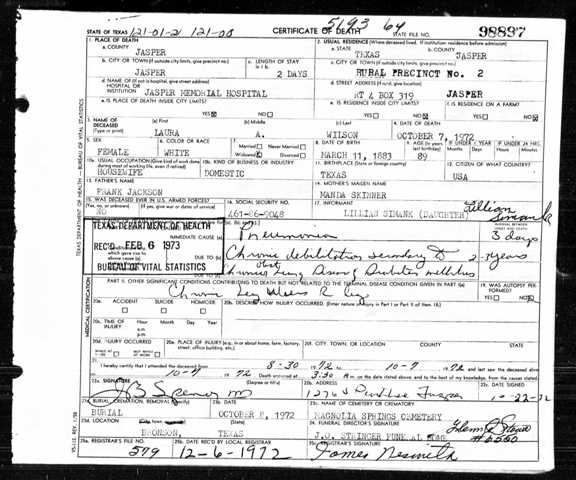 121-01-2 121-00
5193 64
STATE OF TEXAS
CERTIFICATE OF DEATH
STATE FILE NO.
98897
1. PLACE OF DEATH
a. COUNTY
JASPER
2. USUAL RESIDENCE (Where deceased lived. If institution: residence before admission)
a. STATE
TEXAS
b. COUNTY
JASPER
b. CITY OR TOWN (If outside city limits, give precinct no.)
JASPER
c. LENGTH OF STAY
in 1 b.
2 DAYS
c. CITY OR TOWN (If outside city limits, give precinct no.)
RURAL PRECINCT No. 2
d. NAME OF (If not in hospital, give street address)
HOSPITAL OR
INSTITUTION
JASPER MEMORIAL HOSPITAL
d. STREET ADDRESS (If rural, give location)
RT 4 BOX 319 JASPER
e. IS PLACE OF DEATH INSIDE CITY LIMITS?
YES NO
e. IS RESIDENCE INSIDE CITY LIMITS?
YES NO
f. IS RESIDENCE ON A FARM?
YES NO
3. NAME OF
DECEASED
(Type or print)
(a) First
LAURA
(b) Middle
A.
(c) Last
WILSON
4. DATE OF DEATH
OCTOBER 7, 1972
5. SEX
FEMALE
6. COLOR OR RACE
WHITE
7. Married Never Married
Widowed Divorced
8. DATE OF BIRTH
MARCH 11, 1883
9. AGE (In years last birthday)
89
IF UNDER 1 YEAR
Months Days
IF UNDER 24 HRS.
Hours Min.
10a. USUAL OCCUPATION (Give kind of work done during most of working life, even if retired)
HOUSEWIFE
10b. KIND OF BUSINESS OR INDUSTRY
DOMESTIC
11. BIRTHPLACE (State or foreign country)
TEXAS
12. CITIZEN OF WHAT COUNTRY
USA
13. FATHER'S NAME
FRANK JACKSON
14. MOTHER'S MAIDEN NAME
MANDA SKINNER
15. WAS DECEASED EVER IN U.S. ARMED FORCES?
(If yes, give war or dates of service)
NO
16. SOCIAL SECURITY NO.
17. INFORMANT
LILLIAN SIMANK (DAUGHTER)
Lillian Simank
TEXAS DEPARTMENT OF HEALTH
REC'D FEB 6 1973
BUREAU OF VITAL STATISTICS
IMMEDIATE CAUSE (a)
Pneumonia
3 days
DUE TO (b)
Chronic debilitation secondary to
2-3 years
DUE TO (c)
Chronic Lung Disease & Diabetes mellitus
PART II. OTHER SIGNIFICANT CONDITIONS CONTRIBUTING TO DEATH BUT NOT RELATED TO THE TERMINAL DISEASE CONDITION GIVEN IN PART I(a)
Chronic Leg Ulcers R leg
19. WAS AUTOPSY PERFORMED?
YES NO
MEDICAL CERTIFICATION
20a. ACCIDENT SUICIDE HOMICIDE
20b. DESCRIBE HOW INJURY OCCURRED. (Enter nature of injury in Part I or Part II of item 18.)
20c. TIME OF
INJURY
Hour Month Day Year
a.m
p.m
20d. INJURY OCCURRED
20e. PLACE OF INJURY (e.g. in or about home, farm, factory, street, office building, etc.)
20f. CITY, TOWN, OR LOCATION COUNTY STATE
21. I hereby certify that I attended the deceased from
8-30 1972 to 10-7 1972 and last saw the deceased alive
10-7 1972 Death occurred at 3:30 m. on the date stated above, and to the best of my knowledge, from the causes stated
22a. SIGNATURE
(Degree or title)
22b. ADDRESS
Jasper
22c. DATE SIGNED
10-22-72
23a. BURIAL, CREMATION, REMOVAL (Specify)
BURIAL
23b. DATE
OCTOBER 8, 1972
23c. NAME OF CEMETERY OR CREMATORY
MAGNOLIA SPRINGS CEMETERY
23d. LOCATION
BRONSON, TEXAS
24. FUNERAL DIRECTOR'S SIGNATURE
J.O. STRINGER FUNERAL HOME
#6560
25a. REGISTRAR'S FILE NO.
579
25b. DATE REC'D BY LOCAL REGISTRAR
12-6-1972
25c. REGISTRAR'S SIGNATURE
TEXAS DEPARTMENT OF HEALTH — BUREAU OF VITAL STATISTICS